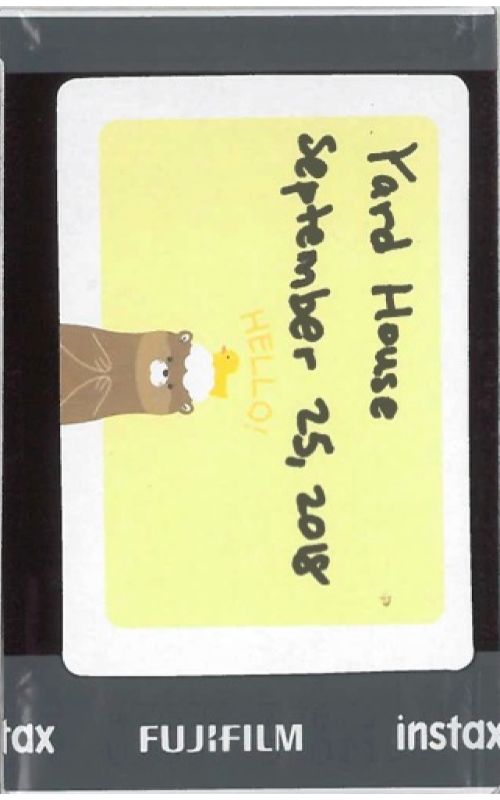 Yard House
September 25, 2018
HELLO!
tax FUJIFILM instax